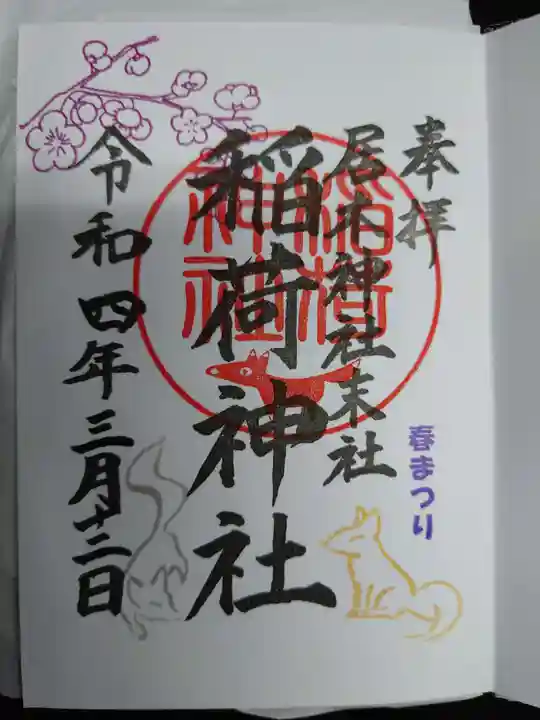 奉拝
居木神社末社
稲荷神社
稲荷
神社
春まつり
令和四年三月十二日